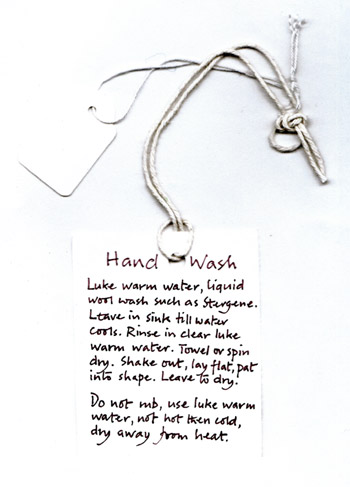 Hand Wash
Luke warm water, liquid
wool wash such as Stergene.
Leave in sink till water
cools. Rinse in clear luke
warm water. Towel or spin
dry. Shake out, lay flat, pat
into shape. Leave to dry.
Do not rub, use luke warm
water, not hot then cold,
dry away from heat.